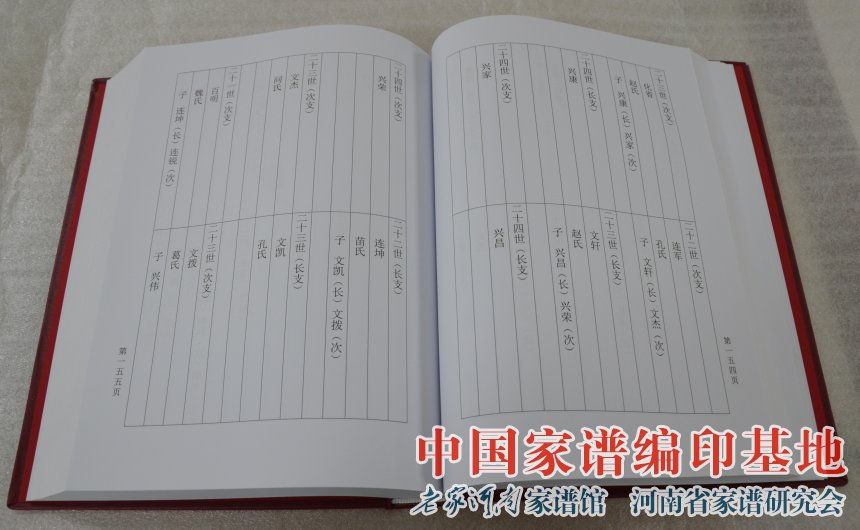 二十三世（次支）
化省
赵氏
子 兴康（长）兴家（次）
二十四世（长支）
兴康
二十四世（次支）
兴家
二十二世（次支）
连军
孔氏
子 文轩（长）文杰（次）
二十三世（长支）
文轩
赵氏
子 兴昌（长）兴荣（次）
二十四世（长支）
兴昌
第一五四页
二十四世（次支）
兴荣
二十三世（次支）
文杰
闫氏
二十一世（次支）
百明
魏氏
子 连坤（长）连锐（次）
二十二世（长支）
连坤
苗氏
子 文凯（长）文拨（次）
二十三世（长支）
文凯
孔氏
二十三世（次支）
文拨
葛氏
子 兴伟
第一五五页
中国家谱编印基地
老家河南家谱馆 河南省家谱研究会